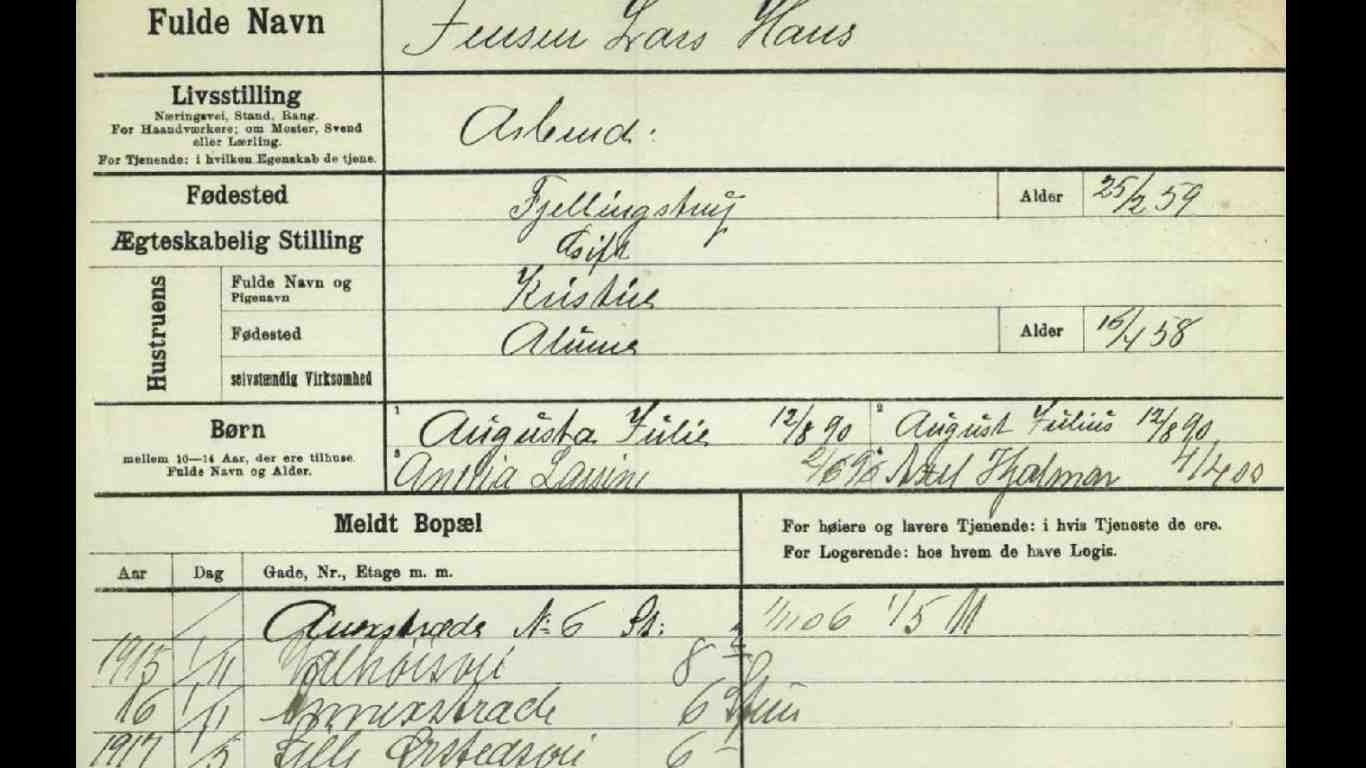 Fulde Navn Jensen Lars Hans
Livsstilling
Næringsvei, Stand, Rang.
For Haandværkere; om Mester, Svend
eller Lærling.
For Tjenende: i hvilken Egenskab de tjene.
Arbmd:
Fødested Fjellingstrup Alder 25/2 59
Ægteskabelig Stilling Gift
Hustruens
Fulde Navn og
Pigenavn
Kristine
Fødested Alder 58
selvstændig Virksomhed
Børn
mellem 10—14 Aar, der ere tilhuse.
Fulde Navn og Alder.
1 Augusta Julie 12/8 90 2 August Julius 12/8 90
3 Amelia 2/6 96 4 Axel Hjalmar 4/4 00
Meldt Bopæl
For høiere og lavere Tjenende: i hvis Tjeneste de ere.
For Logerende: hos hvem de have Logis.
Aar Dag Gade, Nr., Etage m. m.
Anexstræde No 6 St: 1/11 06 1/5 M
1915 1/11 Valhøisvei 8
16 1/11 Annexstræde 6 Stuen
1917 1/5 Ørstedsvei 6 -